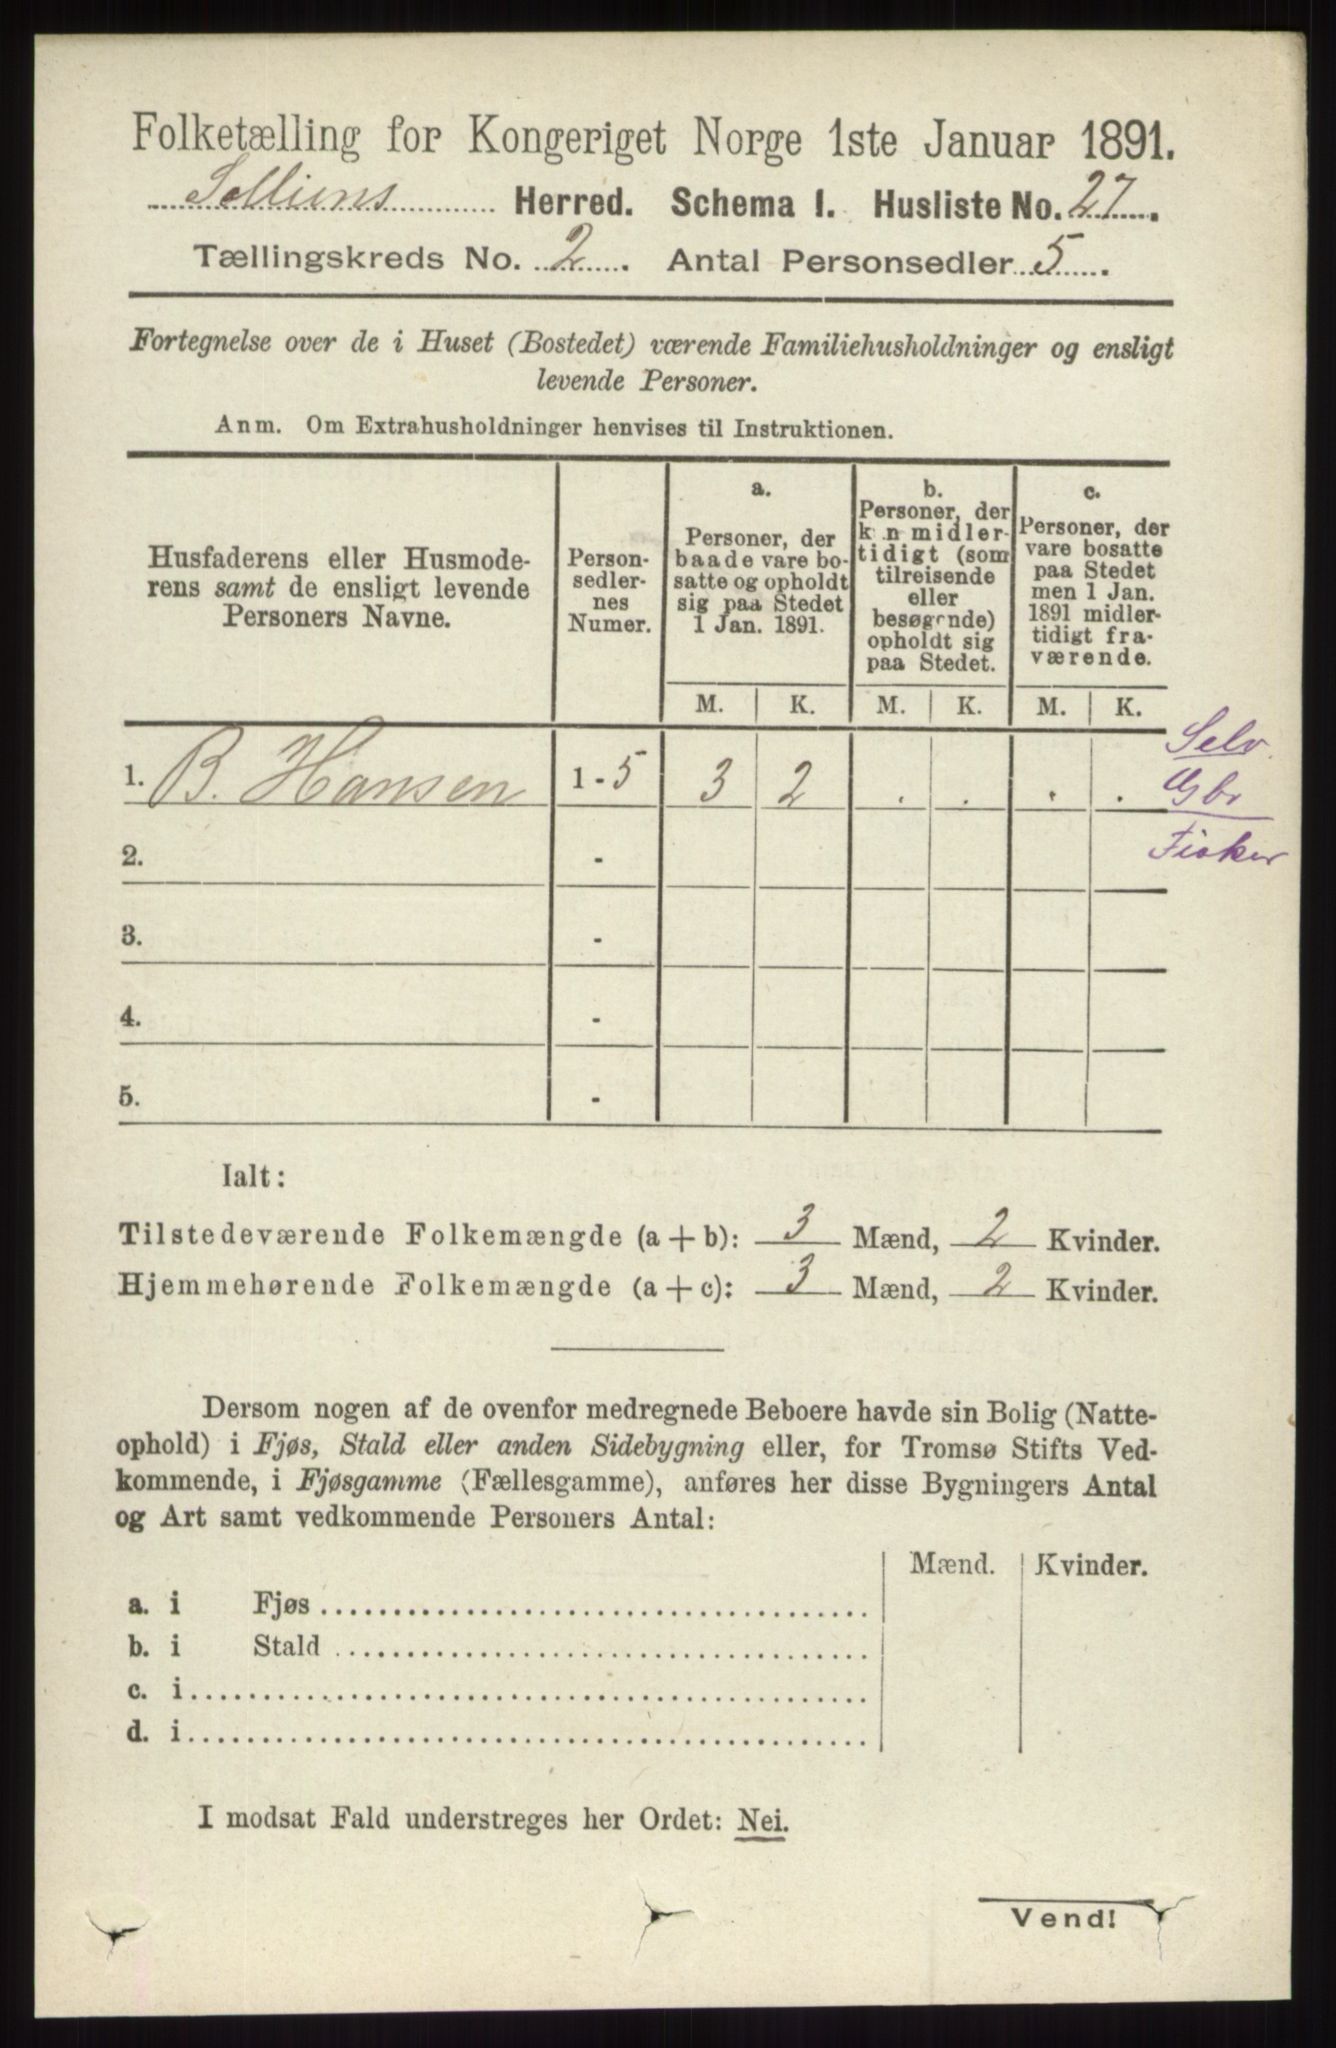 Folketælling for Kongeriget Norge 1ste Januar 1891.
Herred. Schema I. Husliste No. 27.
Tællingskreds No. 2. Antal Personsedler 5.
Fortegnelse over de i Huset (Bostedet) værende Familiehusholdninger og ensligt
levende Personer.
Anm. Om Extrahusholdninger henvises til Instruktionen.
Husfaderens eller Husmode-
rens samt de ensligt levende
Personers Navne.
Person-
sedler-
nes
Numer.
a.
Personer, der
baade vare bo-
satte og opholdt
sig paa Stedet
1 Jan. 1891.
b.
Personer, der
k n midler-
tidigt (som
tilreisende
eller
besøgende)
opholdt sig
paa Stedet.
c.
Personer, der
vare bosatte
paa Stedet
men 1 Jan.
1891 midler-
tidigt fra-
værende.
M. K. M. K. M. K.
1. B. Hansen 1 - 5 3 2 . . . .
Selv
Gbr
Fisker
2. -
3. -
4. -
5. -
Ialt:
Tilstedeværende Folkemængde (a + b): 3 Mænd, 2 Kvinder.
Hjemmehørende Folkemængde (a + c): 3 Mænd, 2 Kvinder.
Dersom nogen af de ovenfor medregnede Beboere havde sin Bolig (Natte-
ophold) i Fjøs, Stald eller anden Sidebygning eller, for Tromsø Stifts Ved-
kommende, i Fjøsgamme (Fællesgamme), anføres her disse Bygningers Antal
og Art samt vedkommende Personers Antal:
Mænd. Kvinder.
a. i Fjøs
b. i Stald
c. i
d. i
I modsat Fald understreges her Ordet: Nei.
Vend!